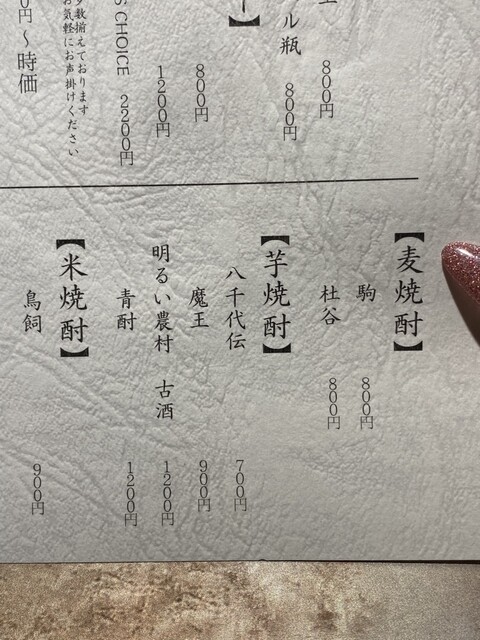 800円
ル瓶 800円
】
800円
1200円
S CHOICE 2200円
数揃えております
お気軽にお声掛けください
0円～時価
【麦焼酎】
駒 800円
杜谷 800円
【芋焼酎】
八千代伝 700円
魔王 900円
明るい農村 古酒 1200円
青酎 1200円
【米焼酎】
鳥飼 900円